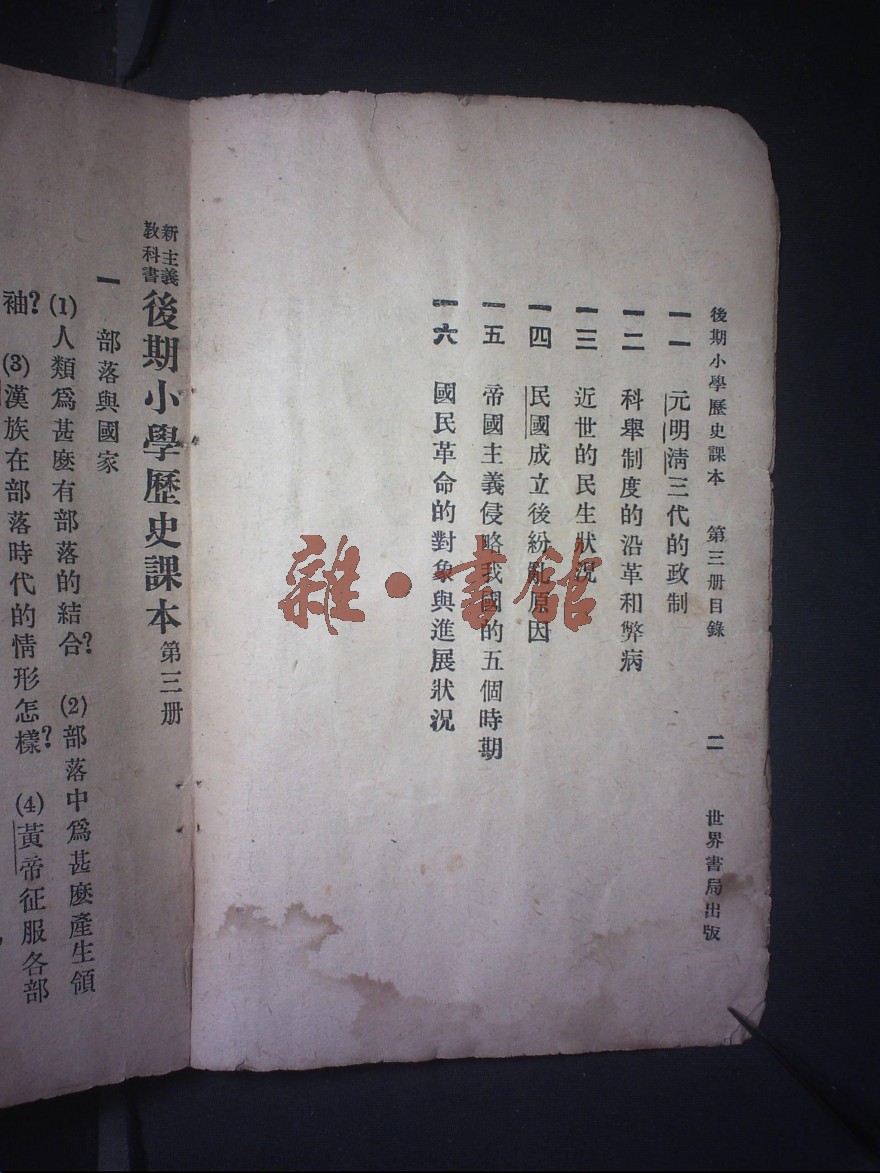 後期小學歷史課本 第三册目錄 二 世界書局出版
一一 元明清三代的政制
一二 科舉制度的沿革和弊病
一三 近世的民生狀況
一四 民國成立後紛亂原因
一五 帝國主義侵略我國的五個時期
一六 國民革命的對象與進展狀況
雜·書館
新主義
教科書
後期小學歷史課本 第三册
一 部落與國家
(1)人類爲甚麽有部落的結合? (2)部落中爲甚麽產生領
袖? (3)漢族在部落時代的情形怎樣? (4)黃帝征服各部